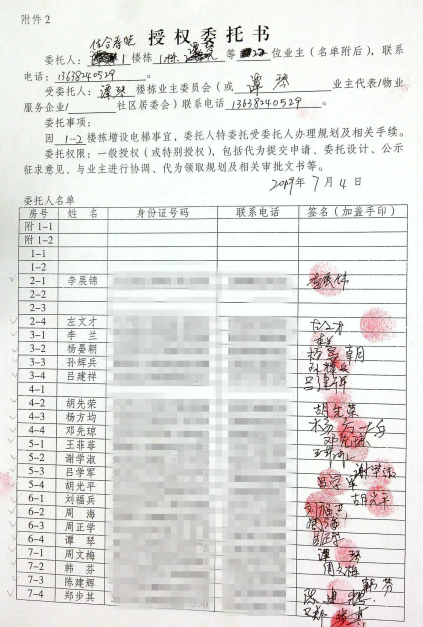 附件 2
授 权 委 托 书
委托人： 1 楼栋 1栋 等 22 位业主（名单附后），联系
电话：13638240529。
受委托人：谭琴 楼栋业主委员会（或 谭琴 业主代表1物业
服务企业/ 社区居委会）联系电话 13638240529。
委托事项：
因 1-2 楼栋增设电梯事宜，委托人特委托受委托人办理规划及相关手续。
委托权限：一般授权（或特别授权），包括代为提交申请、委托设计、公示
征求意见、与业主进行协调、代为领取规划及相关审批文书等。
2019 年 7 月 4 日
委托人名单
房号 姓 名 身份证号码 联系电话 签名（加盖手印）
附 1-1
附 1-2
1-1
1-2
2-1 李展锦
2-2
2-3
2-4 左文才 左文才
3-1 李 兰 李兰
3-2 杨晏朝 杨晏朝
3-3 孙辉兵 孙辉兵
3-4 吕建祥 吕建祥
4-1
4-2 胡先荣 胡先荣
4-3 杨方均
4-4 邓先琼 邓先琼
5-1 王菲菲 王菲菲
5-2 谢学淑 谢学淑
5-3 吕学军 吕学军
5-4 胡光平 胡光平
6-1 刘福兵 刘福兵
6-2 周 海 周海
6-3 周正学 周正学
6-4 谭 琴 谭琴
7-1 周文梅 周文梅
7-2 韩 芬 韩芬
7-3 陈建辉 陈建辉
7-4 郑步其